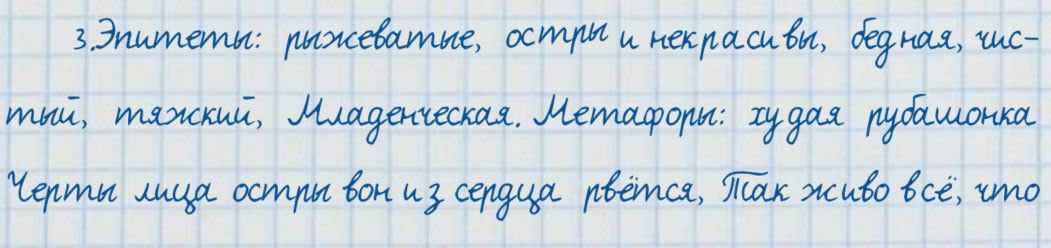 3.Эпитеты: рыжеватые, остры и некрасивы, бедная, чис-
тый, тяжский, Младенческая. Метафоры: худая рубашонка
Черты лица остры вон из сердца рвётся, Так живо всё, что